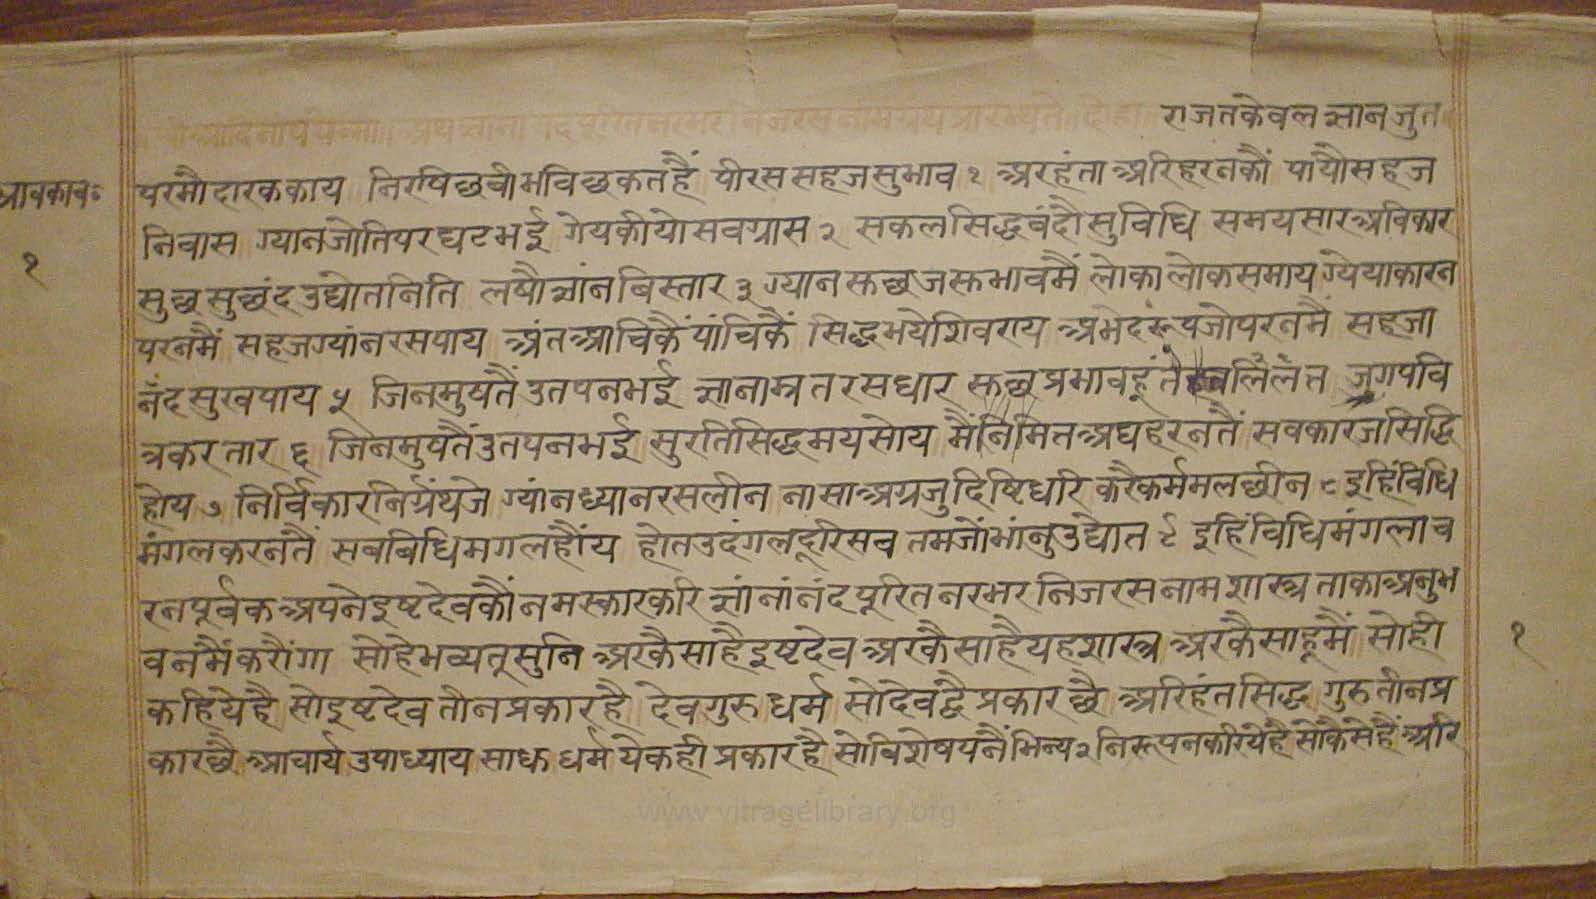 श्रीआदिनाथायनमः अथज्ञानानंदपूरितनरभरनिजरसनामग्रंथप्रारभ्यते दोहा राजतकेवलज्ञानजुत
परमौदारककाय निरषिछबीभविछकतहैं पीरससहजसुभाव १ अरहंताअरिहरनकौं पायौसहज
निवास ग्यानजोतिपरघटभई गेयकीयोसवग्रास २ सकलसिद्धवंदौसुविधि समयसारअविकार
सुछसुछंदउद्योतनिति लषौज्ञांनबिस्तार ३ ग्यानस्वछजस्वभावमैं लोकालोकसमाय ग्येयाकारन
परनमैं सहजग्यांनरसपाय अंतआचिकैंपांचिकैं सिद्धभयेशिवराय अभेदरूपजोपरनमैं सहजा
नंदसुखपाय ५ जिनमुषतैंउतपनभई ज्ञानाम्रतरसधार स्वछप्रभावहूंतै जुगपवि
त्रकरतार ६ जिनमुषतैंउतपनभई सुरतिसिद्धमयसोय मैंनिमितअघहरनतैं सवकारजसिद्धि
होय ७ निर्विकारनिर्ग्रंथजे ग्यांनध्यानरसलीन नासाअग्रजुदिष्टिधरि करैकर्ममलछीन ८ इहिंविधि
मंगलकरनतैं सबबिधिमगलहौंय होतउदंगलदूरिसव तमजोंभांनुउद्योत ९ इहिंविधिमंगलाच
रनपूर्वकअपनेइष्टदेवकौंनमस्कारकरि ज्ञांनांनंदपूरितनरभरनिजरसनामशास्त्र ताकाअनुभ
वनमैंकरौंगा सोहेभव्यतूसुनि अरकैसाहैइष्टदेव अरकैसाहैयहशास्त्र अरकैसाहूमैं सोही
कहियेहै सोइष्टदेवतीनप्रकारहै देवगुरुधर्म सोदेवद्वैप्रकारछै अरिहंतसिद्ध गुरुतीनप्र
कारछै आचार्यउपाध्यायसाध धर्मयेकहीप्रकारहै सोविशेषपनैंभिन्य२निरूपनकरियेहै सोकैसेहैंअरि
श्रावकाच॰
१
१
www.vitragelibrary.org